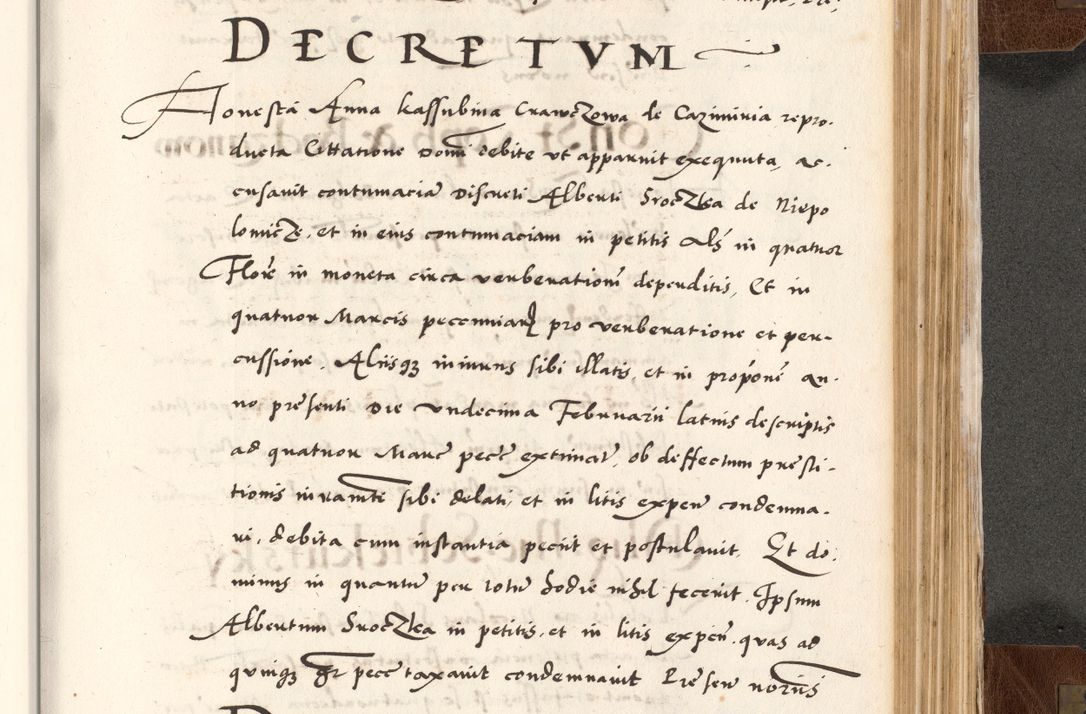 DECRETVM
Honesta Anna Kassubina Crawczowa de Cazimiria repro-
ducta Cittatione Domi debite vt apparuit exequuta, ac-
cusauit contumacia Discreti Alberti Sroczka de Niepo
lomicze, et in eius contumaciam in petitis Als in quatuor
Flore in moneta circa verberatione deperditis, Et in
quatuor Marcis pecuniar pro verberatione et per-
cussione, Aliisq iniuriis sibi illatis, et in propone an-
no presenti Die Vndecima Februarii latius descriptis
ad quatuor Marc pecc extimat, ob deffectum presti-
tionis iuramti sibi delati, et in litis expen condemna-
ri, debita cum instantia peciit et postulauit. Et do-
minus in quantu per totu hodie nihil fecerit. Ipsum
Albertum Sroczka in petitis, et in litis expen, quas ad
quinq gr pecc taxauit condemnauit Presen notriis